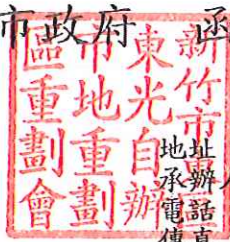 市政府 函
新竹市
東光自辦
市地重劃
區重劃會
地址
承辦
電話
傳真